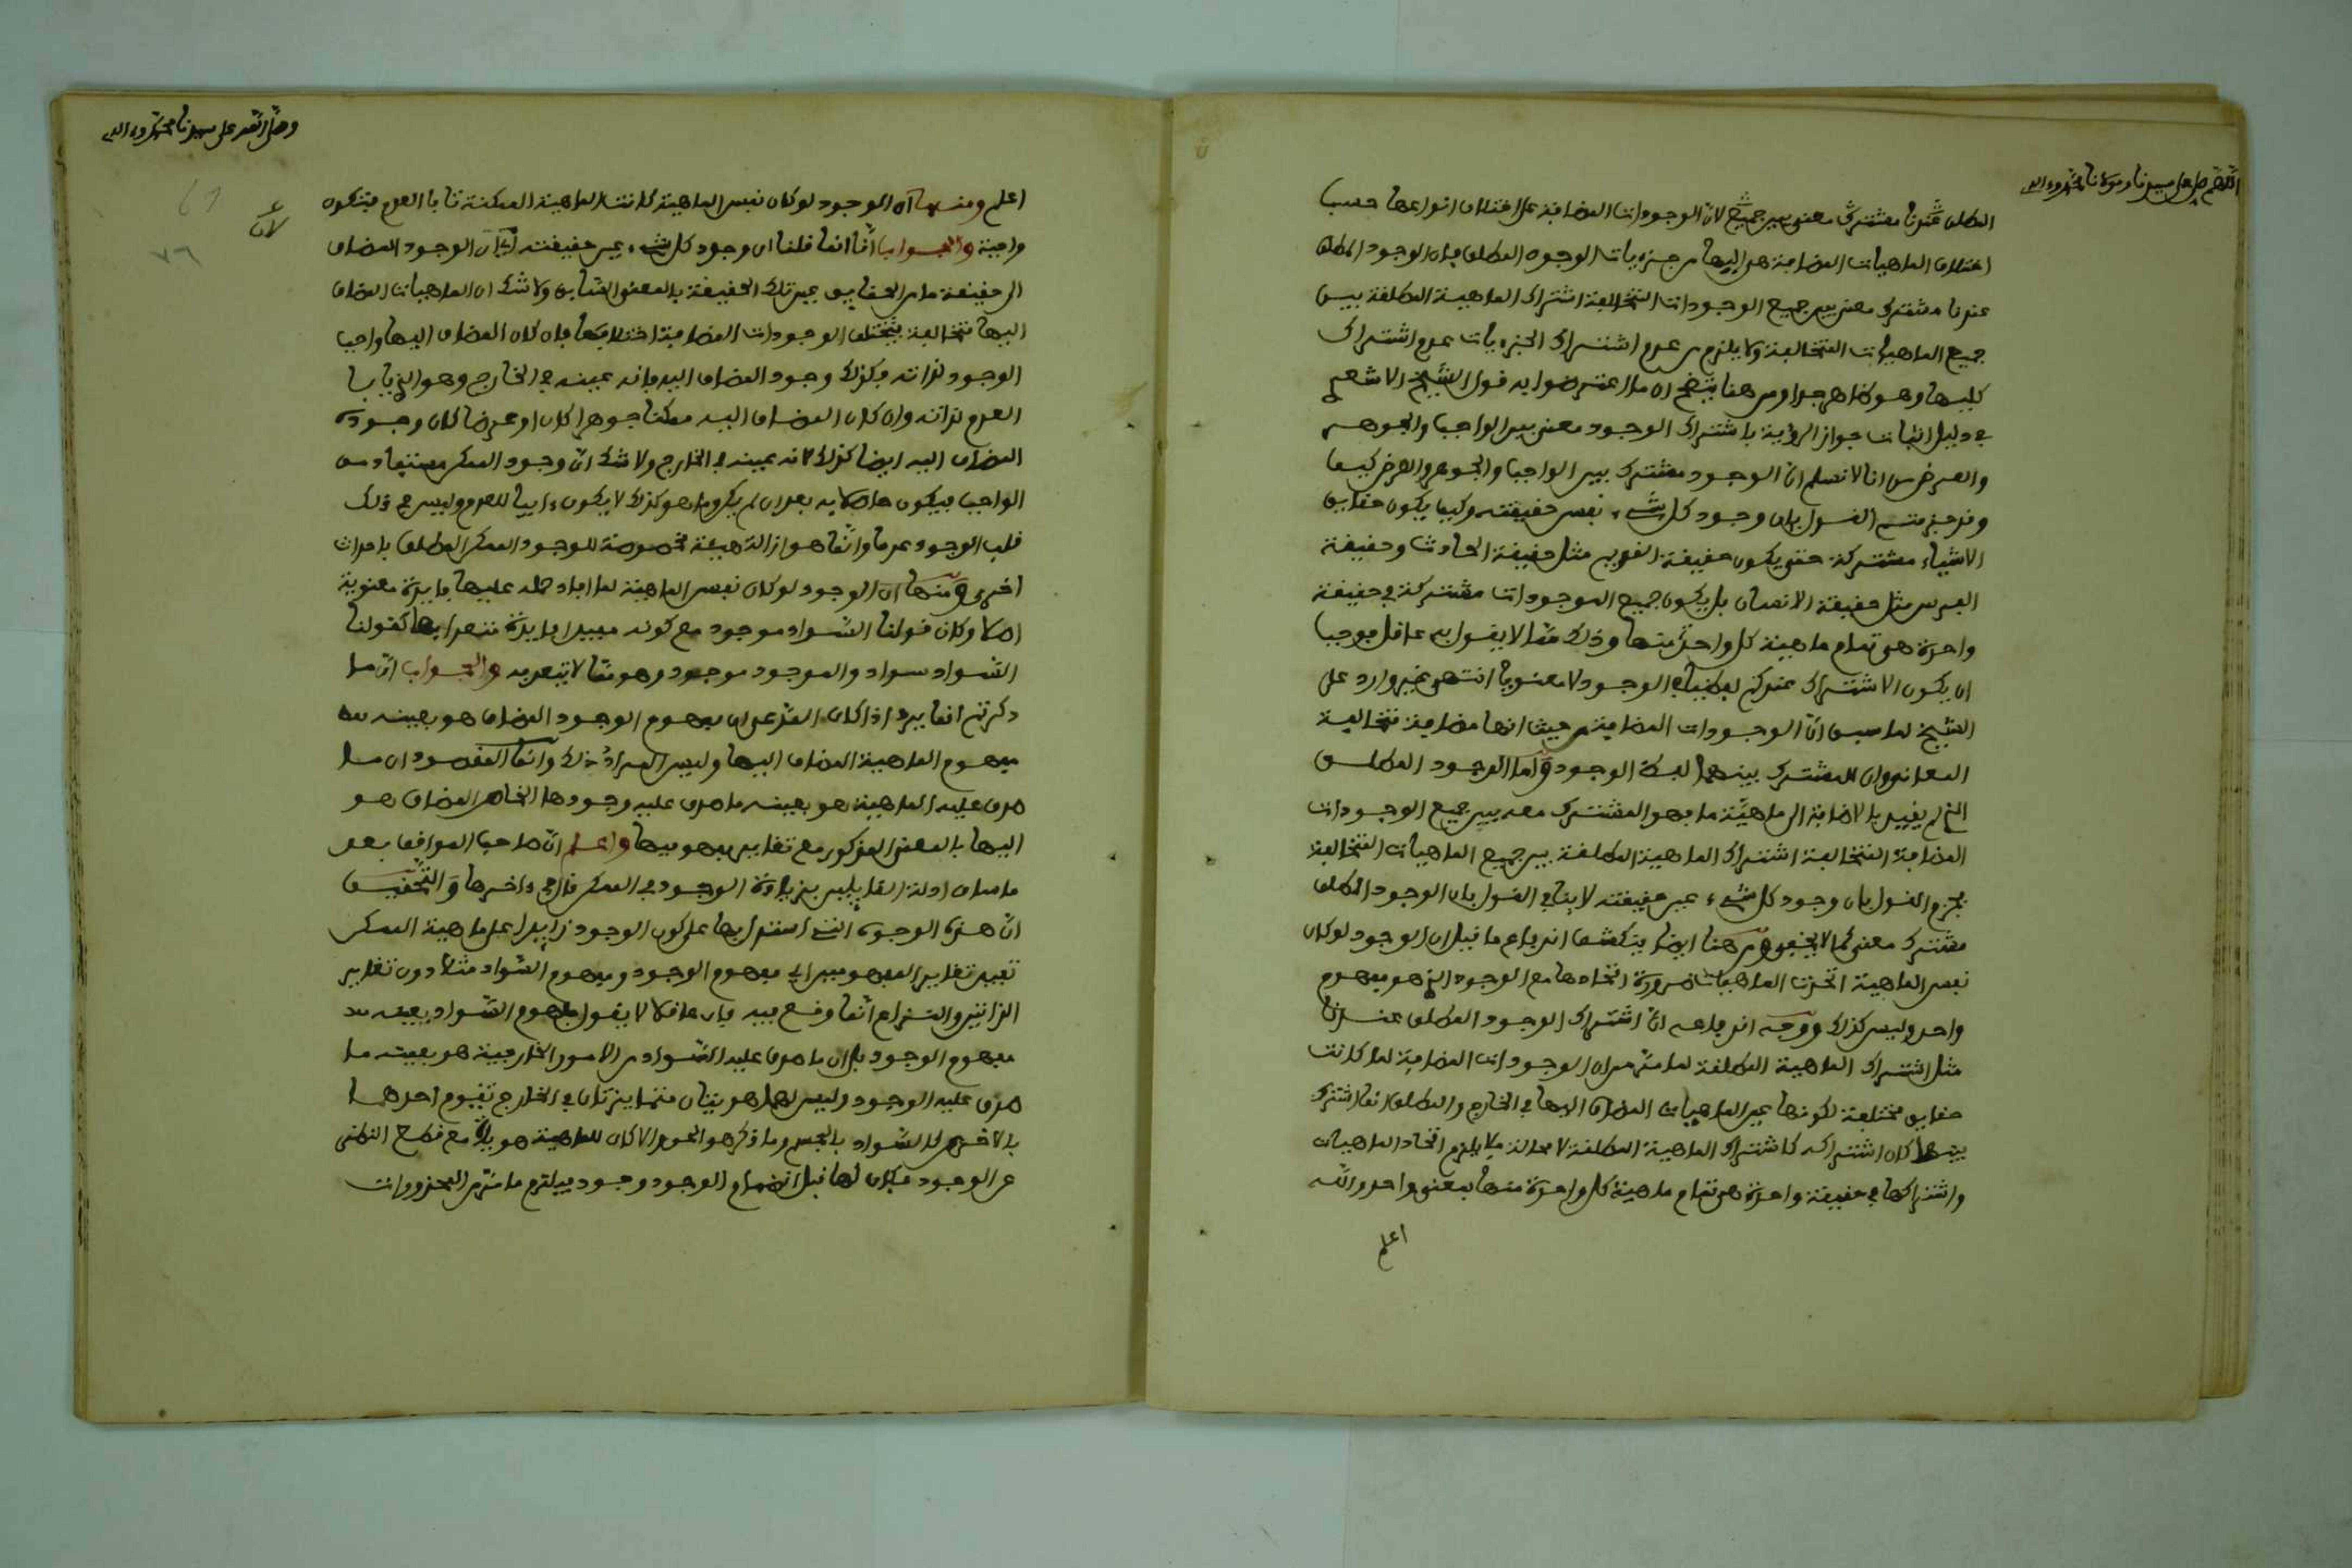 اللهم صل على سيدنا ومولانا محمد وءاله
المطلق عندنا مشترك معنى بين جميع لأن الوجودات المضافة على اختلاف انواعها حسب
اختلاف الماهيات المضافة هي اليها من جزءيات الوجود المطلق فان الوجود المطلق
عندنا مشترك معنى بين جميع الوجودات المتخالفة اشتراك الماهية المطلقة بين
جميع الماهيات المتخالفة ولا يلزم من عدم اشتراك الجزءيات عدم اشتراك
كليها وهو ظاهر جدا ومن هنا يتضح ان ما اعترضوا به قول الشيخ الاشعري
في دليل اثبات جواز الرؤية باشتراك الوجود معنى بين الواجب والجوهر
والعرض من انا لا نسلم ان الوجود مشترك بين الواجب والجوهر والعرض كيف
وقد جزمتم القول بان وجود كل شيء نفس حقيقته وكيف يكون حقايق
الاشياء مشتركة حتى يكون حقيقة القديم مثل حقيقة الحادث وحقيقة
الفرس مثل حقيقة الانسان بل يكون جميع الموجودات مشتركة في حقيقة
واحدة هي تمام ماهية كل واحد منها وذلك مما لا يقول به عاقل فوجب
ان يكون الاشتراك عندكم لفظيا في الوجود لا معنويا انتهى غير وارد على
الشيخ لما سبق ان الوجودات المضافية من حيث انها مضافية متخالفة
المعاني وان المشترك بينهما لفظة الوجود واما الوجود المطلق
الذي لم يقيد بالاضافة الى ماهية ما فهو المشترك معه بين جميع الوجودات
المضافة المتخالفة اشتراك الماهية المطلقة بين جميع الماهيات المتخالفة
فجزم القول بان وجود كل شيء عين حقيقته لا ينافي القول بان الوجود المطلق
مشترك معنى كما لا يخفى ومن هنا ايضا ينكشف اندفاع ما قيل ان الوجود لو كان
نفس الماهية اتحدت الماهيات ضرورة اتحادها مع الوجود الذي هو مفهوم
واحد وليس كذلك ووجه اندفاعه ان اشتراك الوجود المطلق عندنا
مثل اشتراك الماهية المطلقة لما مر من ان الوجودات المضافية لما كانت
حقايق مختلفة لكونها عين الماهيات المضاف اليها في الخارج والمطلق انما اشترك
بينهما كان اشتراكه كاشتراك الماهية المطلقة لا محالة فلا يلزم اتحاد الماهيات
واشتراكها في حقيقة واحدة هي تمام ماهية كل واحدة منها بمعنى واحد والله
اعلم
وصلى الله على سيدنا محمد وءاله
اعلم ومنها ان الوجود لو كان نفس الماهية لما كانت الماهية الممكنة تابا العدم فتكون
واجبة والجواب انا انما قلنا ان وجود كل شيء عين حقيقته لان الوجود المضاف
لان
٧٦
الى حقيقة ما من الحقايق عين تلك الحقيقة بالمعنى السابق ولا شك ان الماهيات المضاف
اليها متخالفة فتختلف الوجودات المضافية اختلافها فان كان المضاف اليها واجب
الوجود لذاته فكذلك وجود المضاف اليه فانه عينه في الخارج وهو الذي يابا
العدم لذاته وان كان المضاف اليه ممكنا جوهرا كان او عرضا كان وجوده
المضاف اليه ايضا كذلك لانه عينه في الخارج ولا شك ان وجود الممكن مستفاد من
الواجب فيكون حاصلا به بعد ان لم يكن وما هو كذلك لا يكون ءابيا للعدم وليس في ذلك
قلب الوجود عدما وانما هو ازالة هيئة مخصوصة للوجود الممكن المطلق باحداث
اخرى ومنها ان الوجود لو كان نفس الماهية لما افاد حمله عليها فايدة معنوية
اصلا وكان قولنا السواد موجود مع كونه مفيدا فايدة نتعد ابها كقولنا
السواد سواد والموجود موجود وهو مما لا يتعد به والجواب ان ما
ذكرتم انما يرد اذا كان المدعى ان مفهوم الوجود المضاف هو بعينه
مفهوم الماهية المضاف اليها وليس المراد ذلك وانما المقصود ان ما
صدق عليه الماهية هو بعينه ما صدق عليه وجودها الخاص المضاف هو
اليها بالمعنى المذكور مع تغاير مفهوميها واعلم ان صاحب المواقف بعد
ما ساق ادلة القايلين بزيادة الوجود في الممكن قال في ءاخرها والتحقيق
ان هذه الوجوه التي استدل بها على كون الوجود زايدا على ماهية الممكن
تفيد تغاير المفهومين اي مفهوم الوجود ومفهوم السواد مثلا دون تغاير
الذاتين والنزاع انما وقع فيه فان عاقلا لا يقول مفهوم السواد بعينه
مفهوم الوجود بل ان ما صدق عليه السواد من الامور الخارجية هو بعينه ما
صدق عليه الوجود وليس لهما هويتان متمايزتان في الخارج تقوم احدهما
بالاخرى كالسواد بالجسم وما ذكر هو الحق والا كان للماهية هوية مع قطع النظر
عن الوجود فكان لها قبل انضمام الوجود وجود فيلزم ما مر من المحذورات